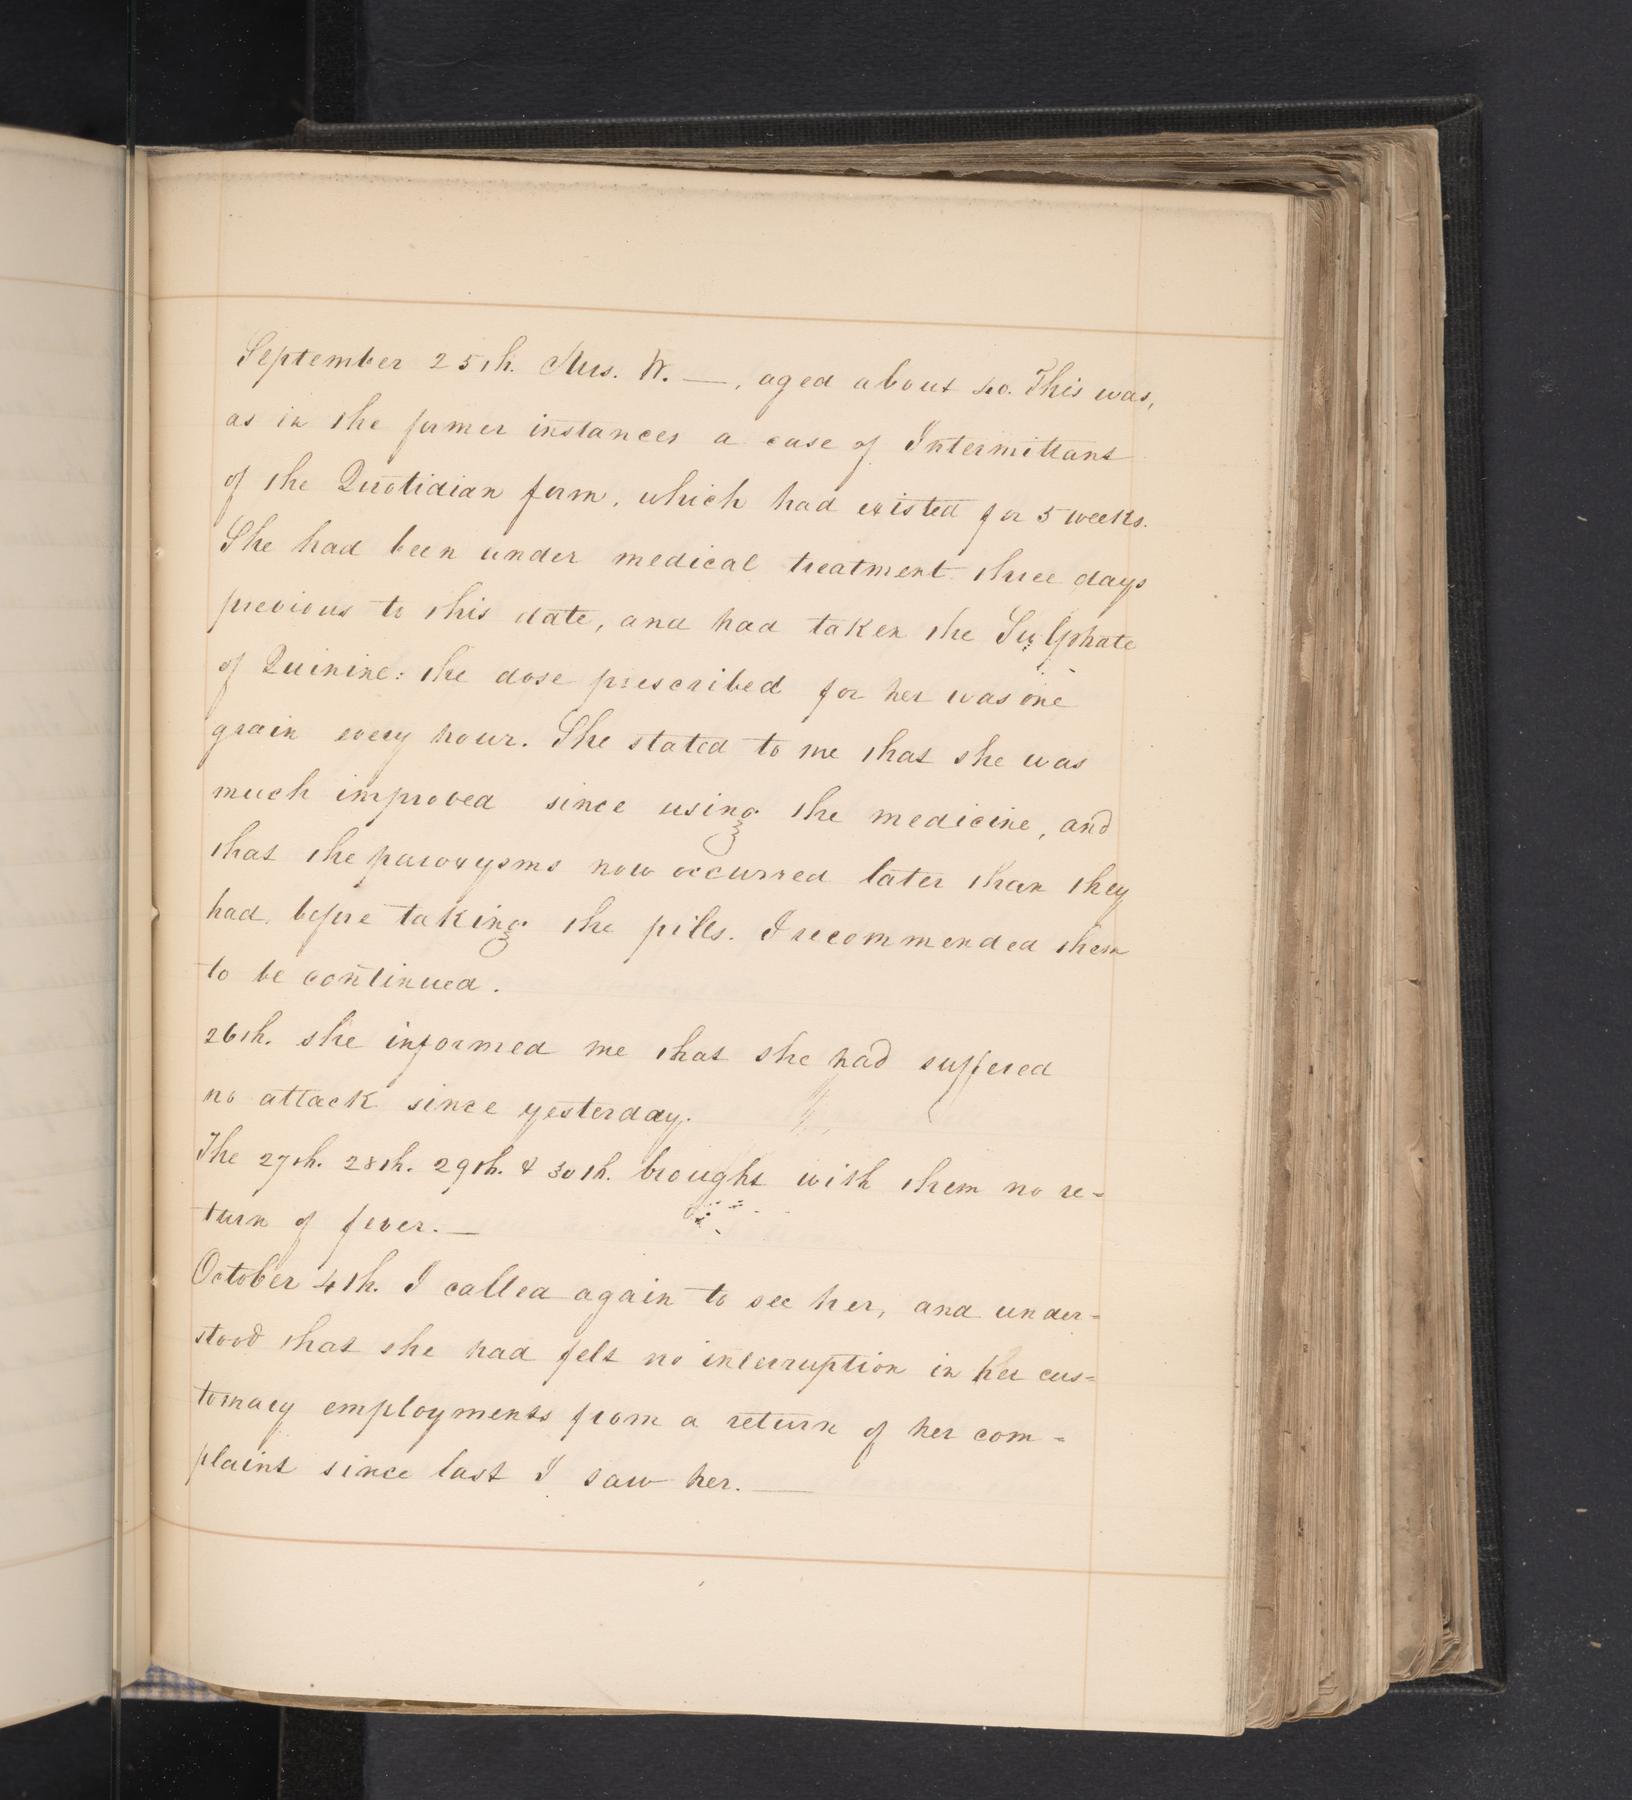 September 25th. Mrs. W. —, aged about 40. This was,
as in the former instances a case of Intermittant
of the Quotidian form, which had existed for 5 weeks.
She had been under medical treatment three days
previous to this date, and had taken the Sulphate
of Quinine: the dose prescribed for her was one
grain every hour. She stated to me that she was
much improved since using the medicine, and
that the paroxysms now occurred later than they
had before taking the pills. I recommended them
to be continued.
26th. she informed me that she had suffered
no attack since yesterday.
The 27th. 28th. 29th. & 30th. brought with them no re-
turn of fever. —
October 4th. I called again to see her, and under-
stood that she had felt no interruption in her cus-
tomary employments from a return of her com-
plaint since last I saw her. —